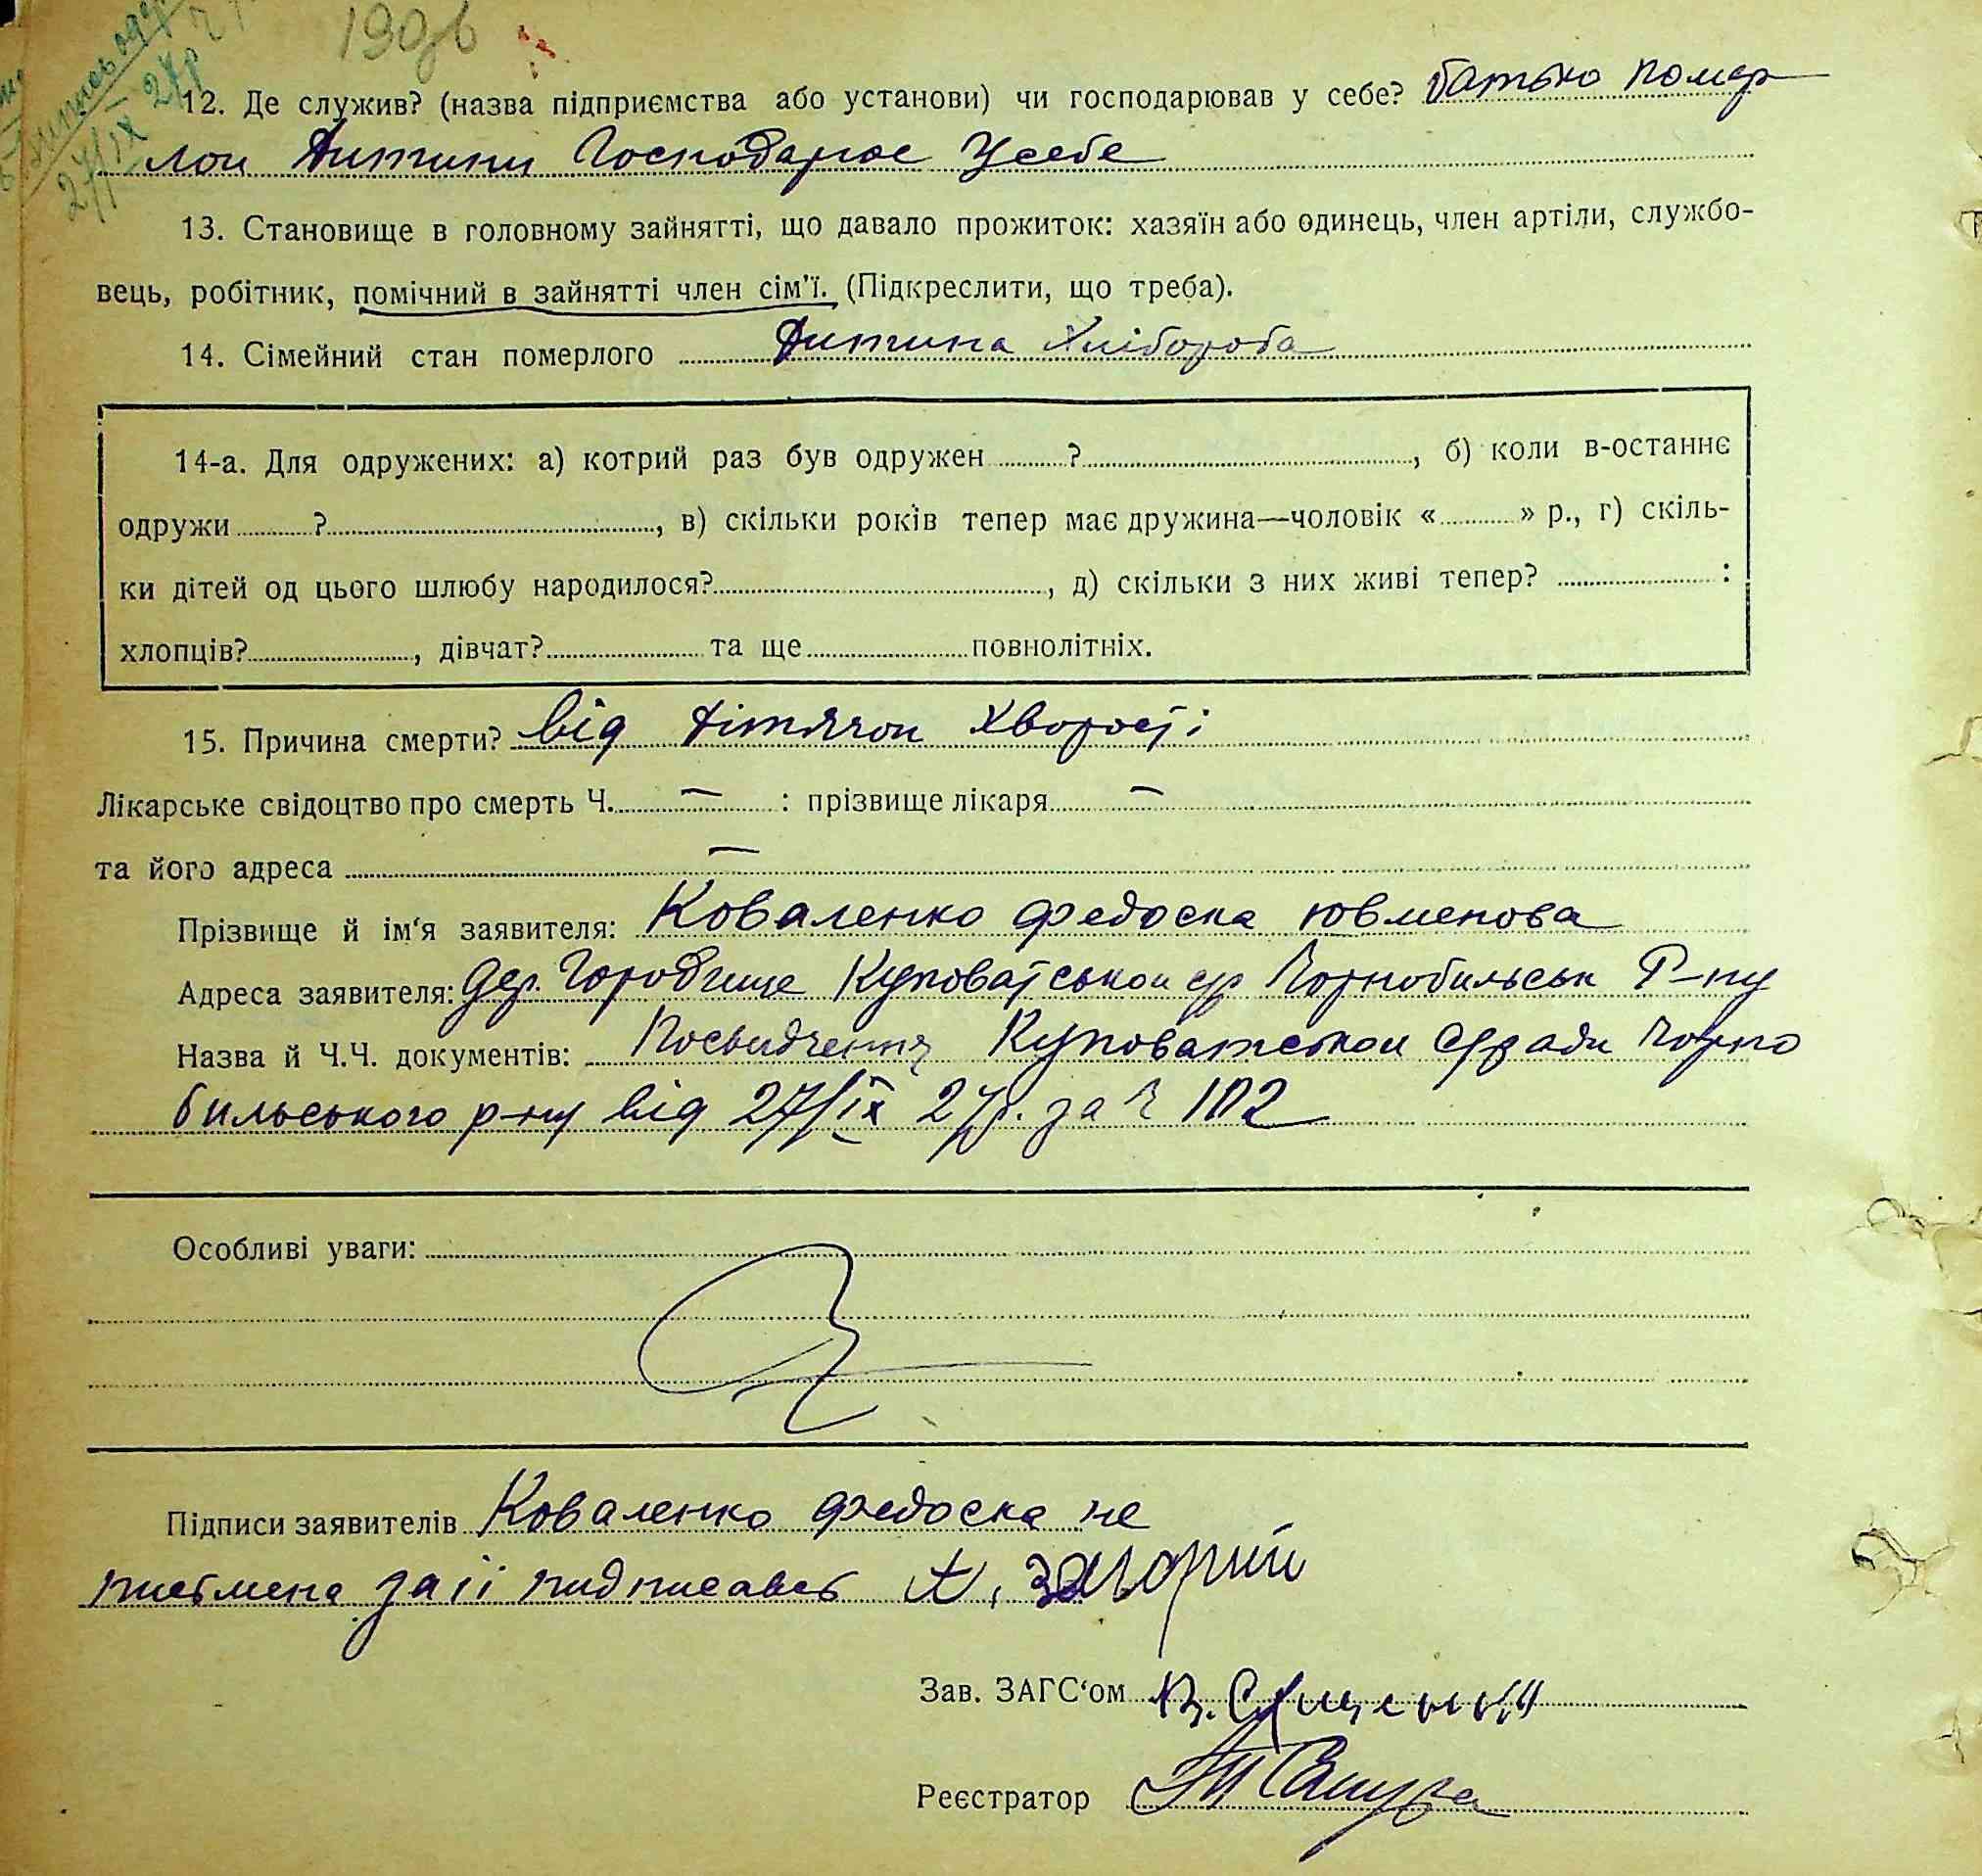 190зв
27/IX 27р
12. Де служив? (назва підприємства або установи) чи господарював у себе? батько помер
лои дитини господарює усебе
13. Становище в головному зайнятті, що давало прожиток: хазяїн або одинець, член артіли, службо-
вець, робітник, помічний в зайнятті член сім'ї. (Підкреслити, що треба).
14. Сімейний стан померлого дитина хлібороба
14-а. Для одружених: а) котрий раз був одружен ? , б) коли в-останнє
одружи ? , в) скільки років тепер має дружина—чоловік « » р., г) скіль-
ки дітей од цього шлюбу народилося? , д) скільки з них живі тепер? :
хлопців? , дівчат? та ще повнолітніх.
15. Причина смерти? від дітячои хворості
Лікарське свідоцтво про смерть Ч. — : прізвище лікаря —
та його адреса —
Прізвище й ім'я заявителя: Коваленко Федоска Ювменова
Адреса заявителя: дер. Городище Куповатськои ср Чорнобильськ Р-ну
Назва й Ч.Ч. документів: Посьвидчення Куповатськои сради Чорно
бильського р-ну від 27/IX 27р. за Ч 102
Особливі уваги:
Підписи заявителів Коваленко Федоска не
письмена за іі пидписавсь
Зав. ЗАГС'ом
Реєстратор